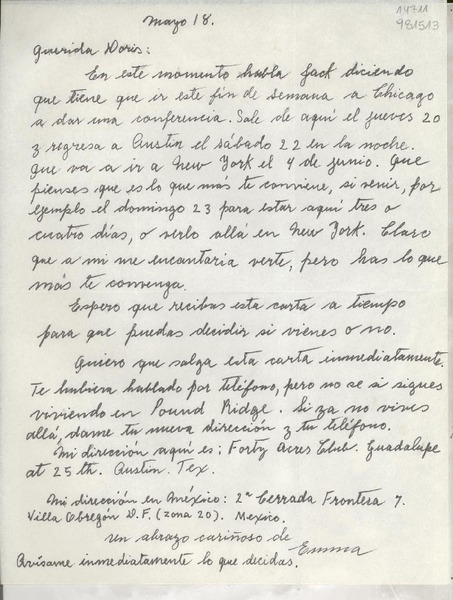 14711
981513
Mayo 18.
Querida Doris:
En este momento habla Jack diciendo
que tiene que ir este fin de semana a Chicago
a dar una conferencia. Sale de aquí el jueves 20
y regresa a Austin el sábado 22 en la noche.
Que va a ir a New York el 4 de junio. Que
pienses que es lo que más te conviene, si venir, por
ejemplo el domingo 23 para estar aquí tres o
cuatro días, o verlo allá en New York. Claro
que a mi me encantaria verte, pero has lo que
más te convenga.
Espero que recibas esta carta a tiempo
para que puedas decidir si vienes o no.
Quiero que salga esta carta inmediatamente.
Te hubiera hablado por teléfono, pero no se si sigues
viviendo en Pound Ridge. Si ya no vives
allá, dame tu nueva dirección y tu teléfono.
Mi dirección aquí es: Forty Acres Club. Guadalupe
at 25 th. Austin. Tex.
Mi dirección en México: 2ª Cerrada Frontera 7.
Villa Obregón D.F. (zona 20). Mexico.
Un abrazo cariñoso de
Emma
Avísame inmediatamente lo que decidas.